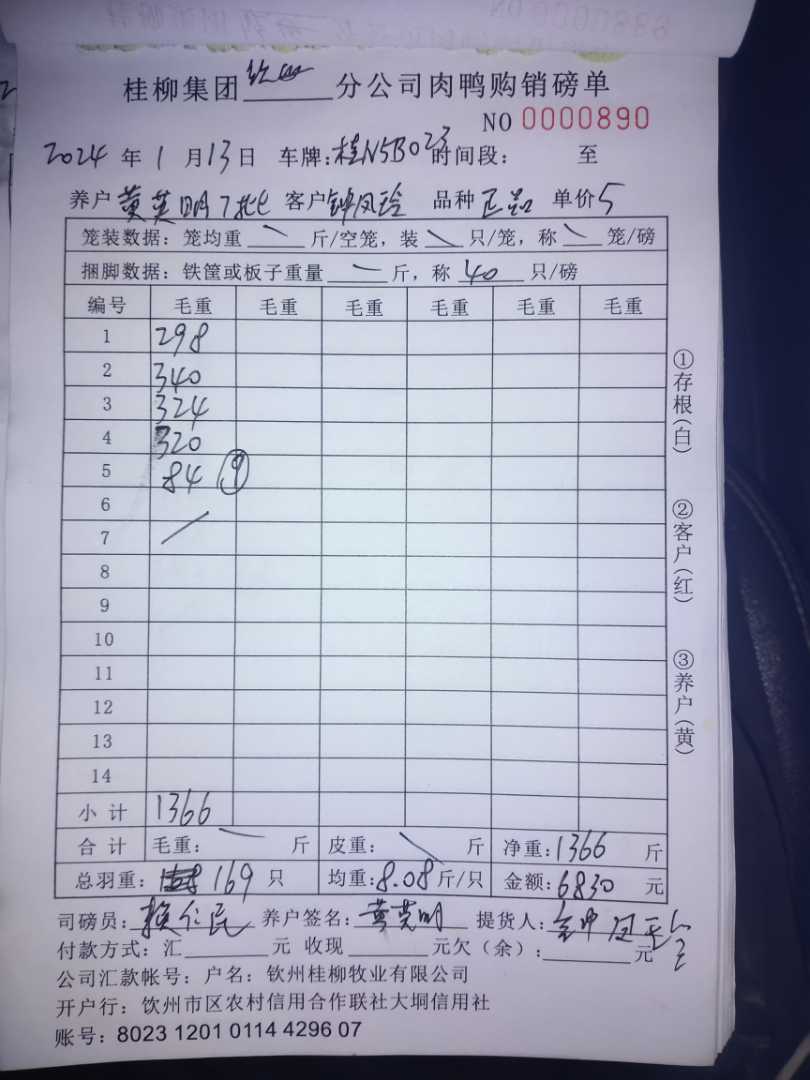 桂柳集团钦州分公司肉鸭购销磅单
NO 0000890
2024年1月13日 车牌:桂N5B023时间段: 至
养户黄英明7批 客户钟凤玲 品种正品 单价5
笼装数据:笼均重\斤/空笼,装\只/笼,称\笼/磅
捆脚数据:铁筐或板子重量\斤,称40只/磅
编号 毛重 毛重 毛重 毛重 毛重 毛重
1 298
2 340
3 324
4 320
5 84 ⑨
6
7 /
8
9
10
11
12
13
14
小计 1366
合计 毛重:\斤 皮重:\斤 净重:1366斤
总羽重:169只 均重:8.08斤/只 金额:6830元
司磅员:赖仁民 养户签名:黄英明 提货人:
付款方式:汇____元 收现____元欠(余):____元
公司汇款帐号:户名:钦州桂柳牧业有限公司
开户行:钦州市区农村信用合作联社大垌信用社
账号:8023 1201 0114 4296 07
①存根(白)
②客户(红)
③养户(黄)